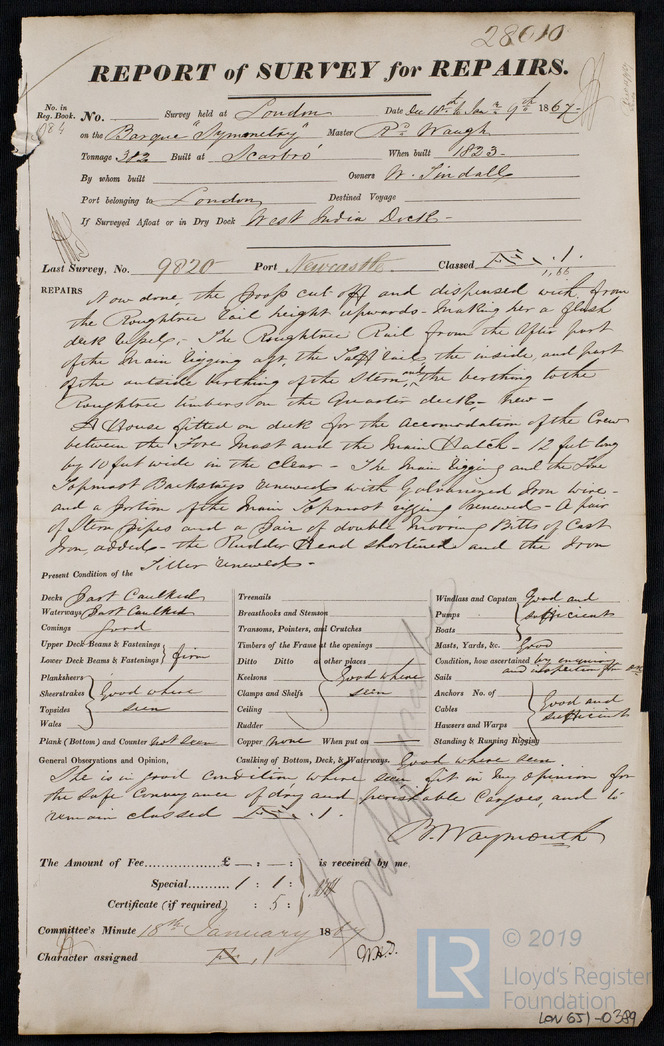 28010
REPORT of SURVEY for REPAIRS.
No. in Reg. Book. No. Survey held at London Date Dec 18th to Jany 9th 1867
984 on the Barque "Symmetry" Master Rd Waugh
Tonnage 382 Built at Scarbro' When built 1823
By whom built Owners W. Tindall
Port belonging to London Destined Voyage
If Surveyed Afloat or in Dry Dock West India Dock
Last Survey, No. 9820 Port Newcastle Classed Æ .1.
1,66
REPAIRS Now done, the Poop cut off and dispensed with, from
the Roughtree rail height upwards - making her a flush
deck vessel, - The Roughtree Rail from the after part
of the Main rigging aft, the Taffrail, the inside, and part
of the outside birthing of the Stern, and the berthing to the
Roughtree timbers on the Quarter deck, New -
A House fitted on deck for the Accomodation of the Crew
between the Fore Mast and the Main Hatch - 12 feet long
by 10 feet wide in the clear - The Main rigging and the Fore
Topmast Backstays renewed with Galvanized Iron wire -
and a portion of the Main Topmast rigging renewed - A pair
of Stern pipes and a Pair of double Mooring Bitts of Cast
Iron added - the Rudder Head shortened and the Iron
Tiller renewed -
Present Condition of the
Decks Part Caulked
Waterways Part Caulked
Comings Good
Upper Deck Beams & Fastenings
Lower Deck Beams & Fastenings } firm
Planksheers
Sheerstrakes } Good where
Topsides seen
Wales
Plank (Bottom) and Counter not seen
Treenails
Breasthooks and Stemson
Transoms, Pointers, and Crutches
Timbers of the Frame at the openings
Ditto Ditto at other places
Keelsons Good where
Clamps and Shelfs seen
Ceiling
Rudder
Copper None When put on
Windlass and Capstan Good and
Pumps sufficient
Boats
Masts, Yards, &c. Good
Condition, how ascertained by enquiry
and inspection from deck
Sails
Anchors No. of
Cables Good and
Hawsers and Warps sufficient
Standing & Running Rigging
General Observations and Opinion, Caulking of Bottom, Deck, & Waterways. Good where seen
She is in good condition where seen fit in my opinion for
the safe conveyance of dry and perishable Cargoes, and to
remain classed Æ .1.
B. Waymouth
The Amount of Fee £ — : — : is received by me
Special 1 : 1 :
Certificate (if required) : 5 :
Committee's Minute 18th January 1867
Character assigned Æ .1 W.H.T.
LR © 2019
Lloyd's Register
Foundation
LON 651-0389